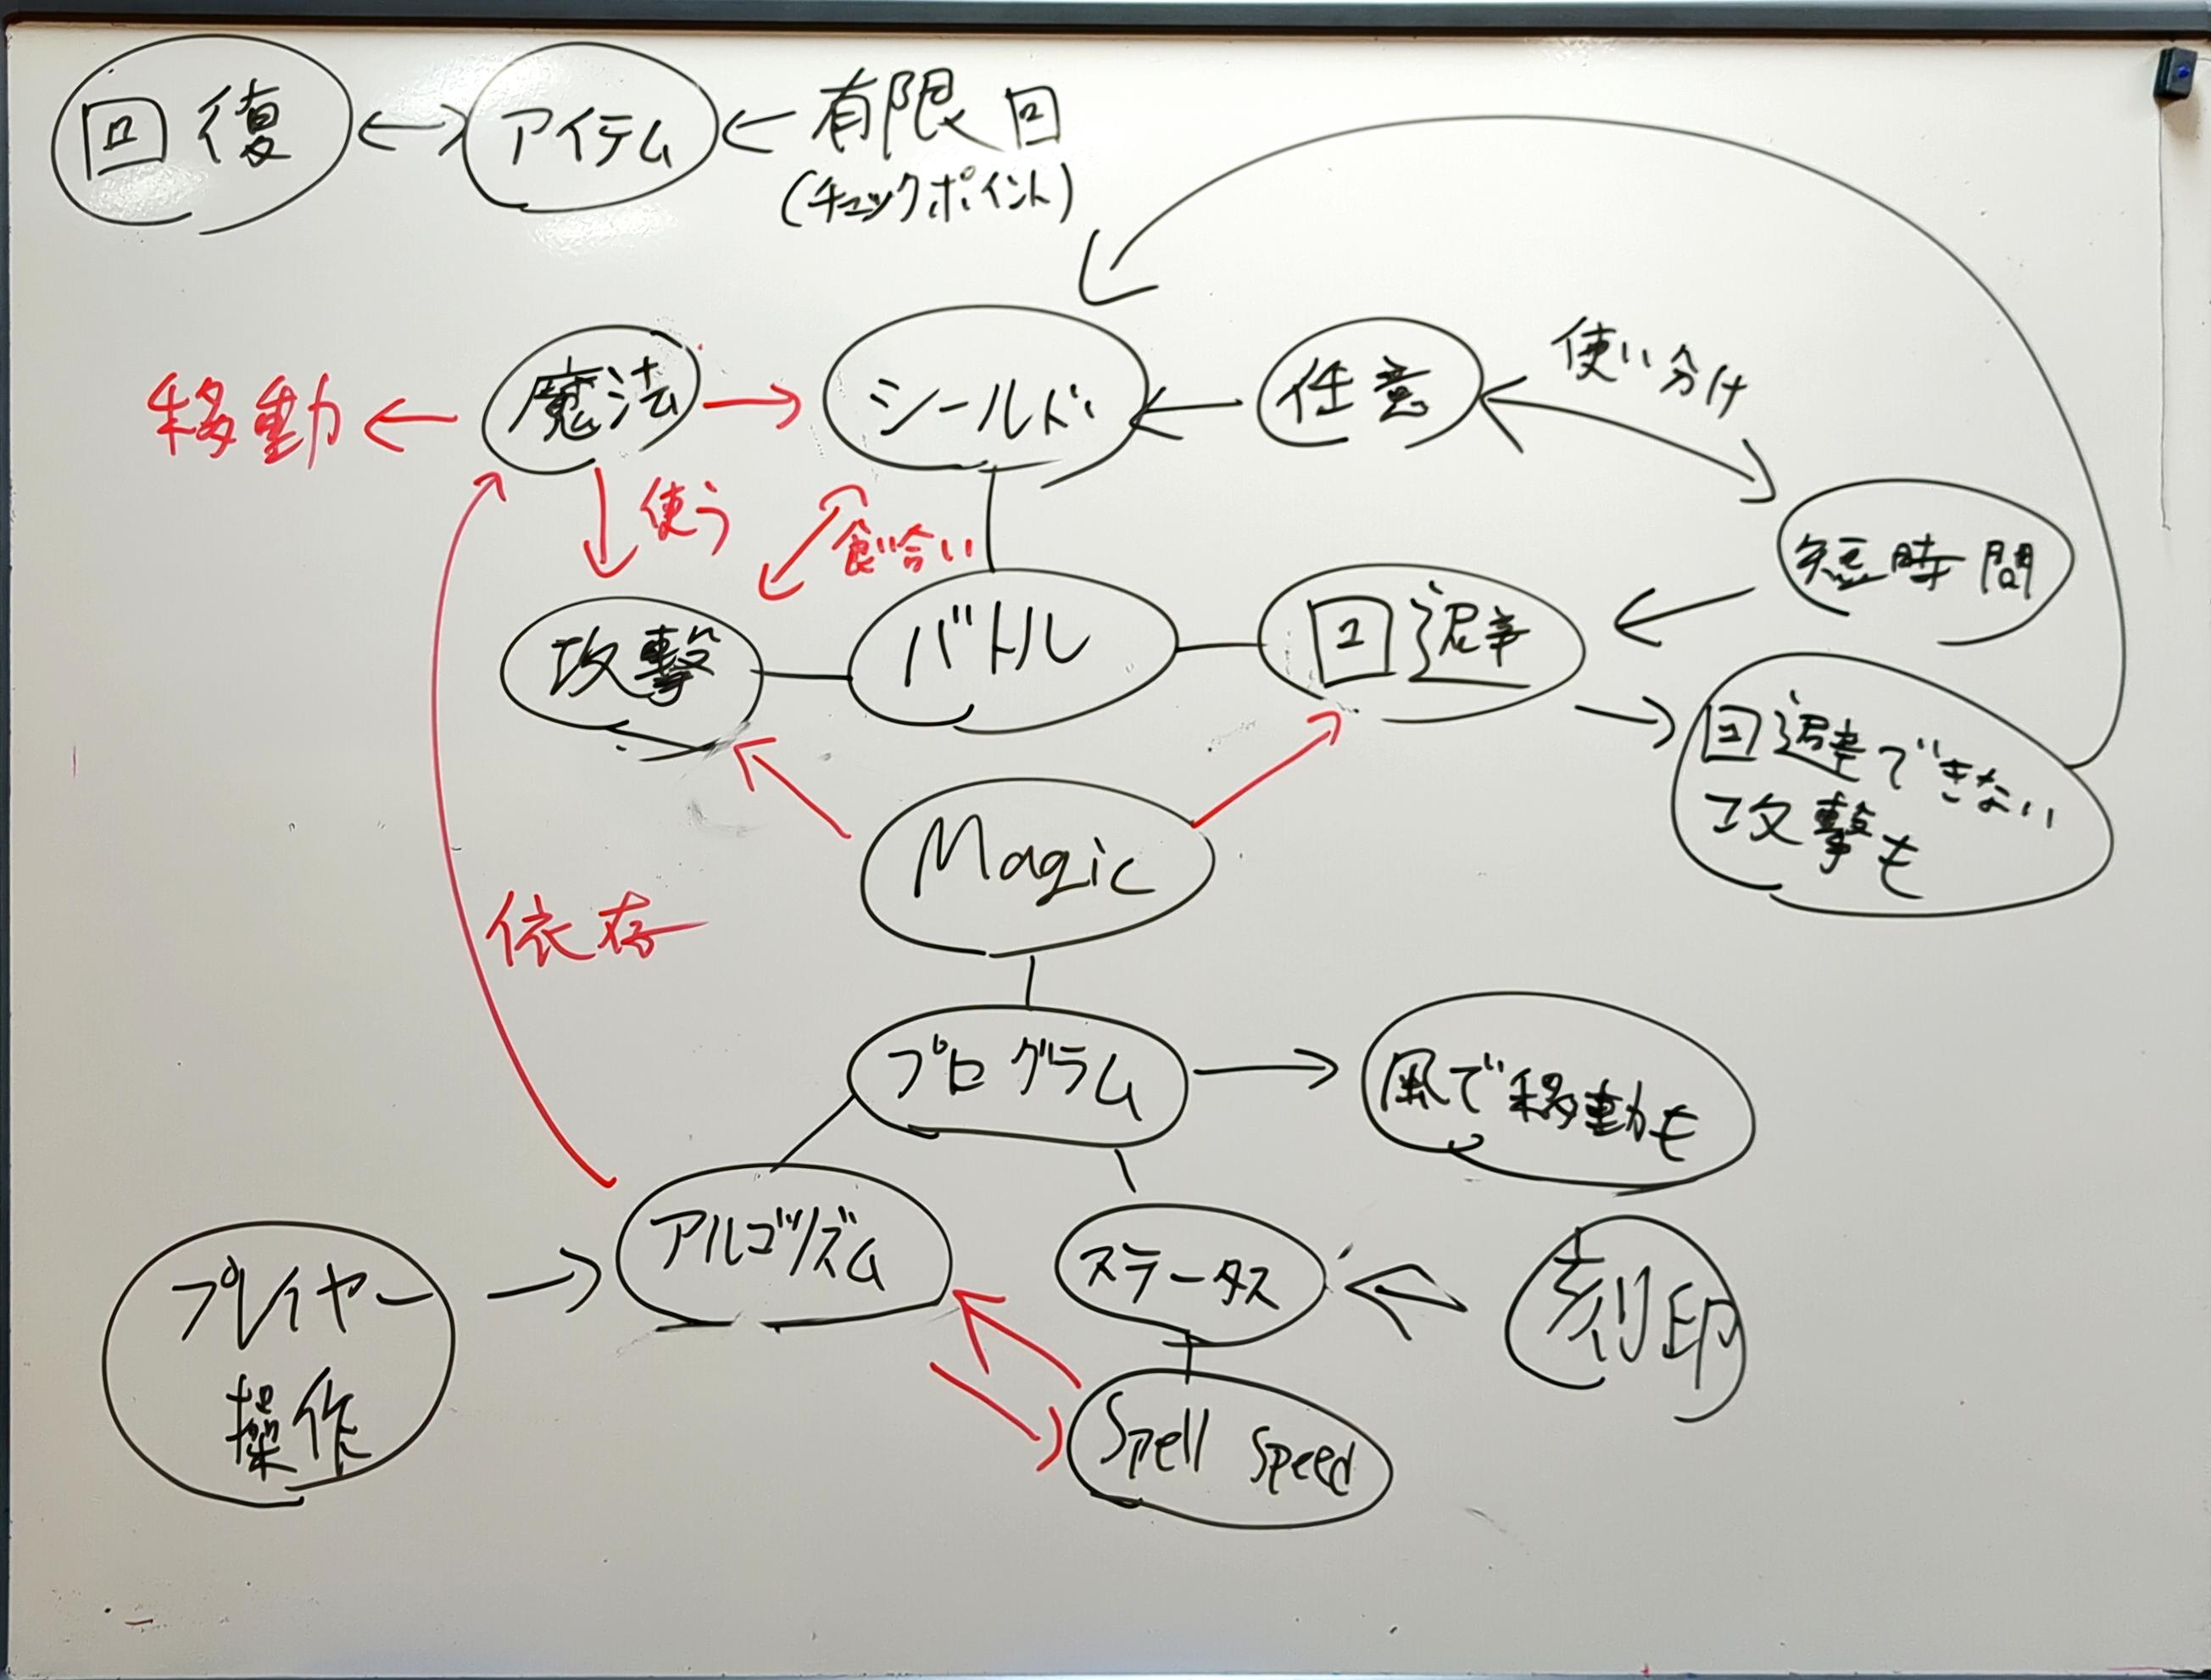 回復
アイテム
有限回
(チェックポイント)
移動
魔法
シールド
任意
使い分け
使う
食い合い
短時間
攻撃
バトル
回避
回避できない
攻撃も
Magic
依存
プログラム
風で移動も
プレイヤー
操作
アルゴリズム
ステータス
刻印
Spell Speed